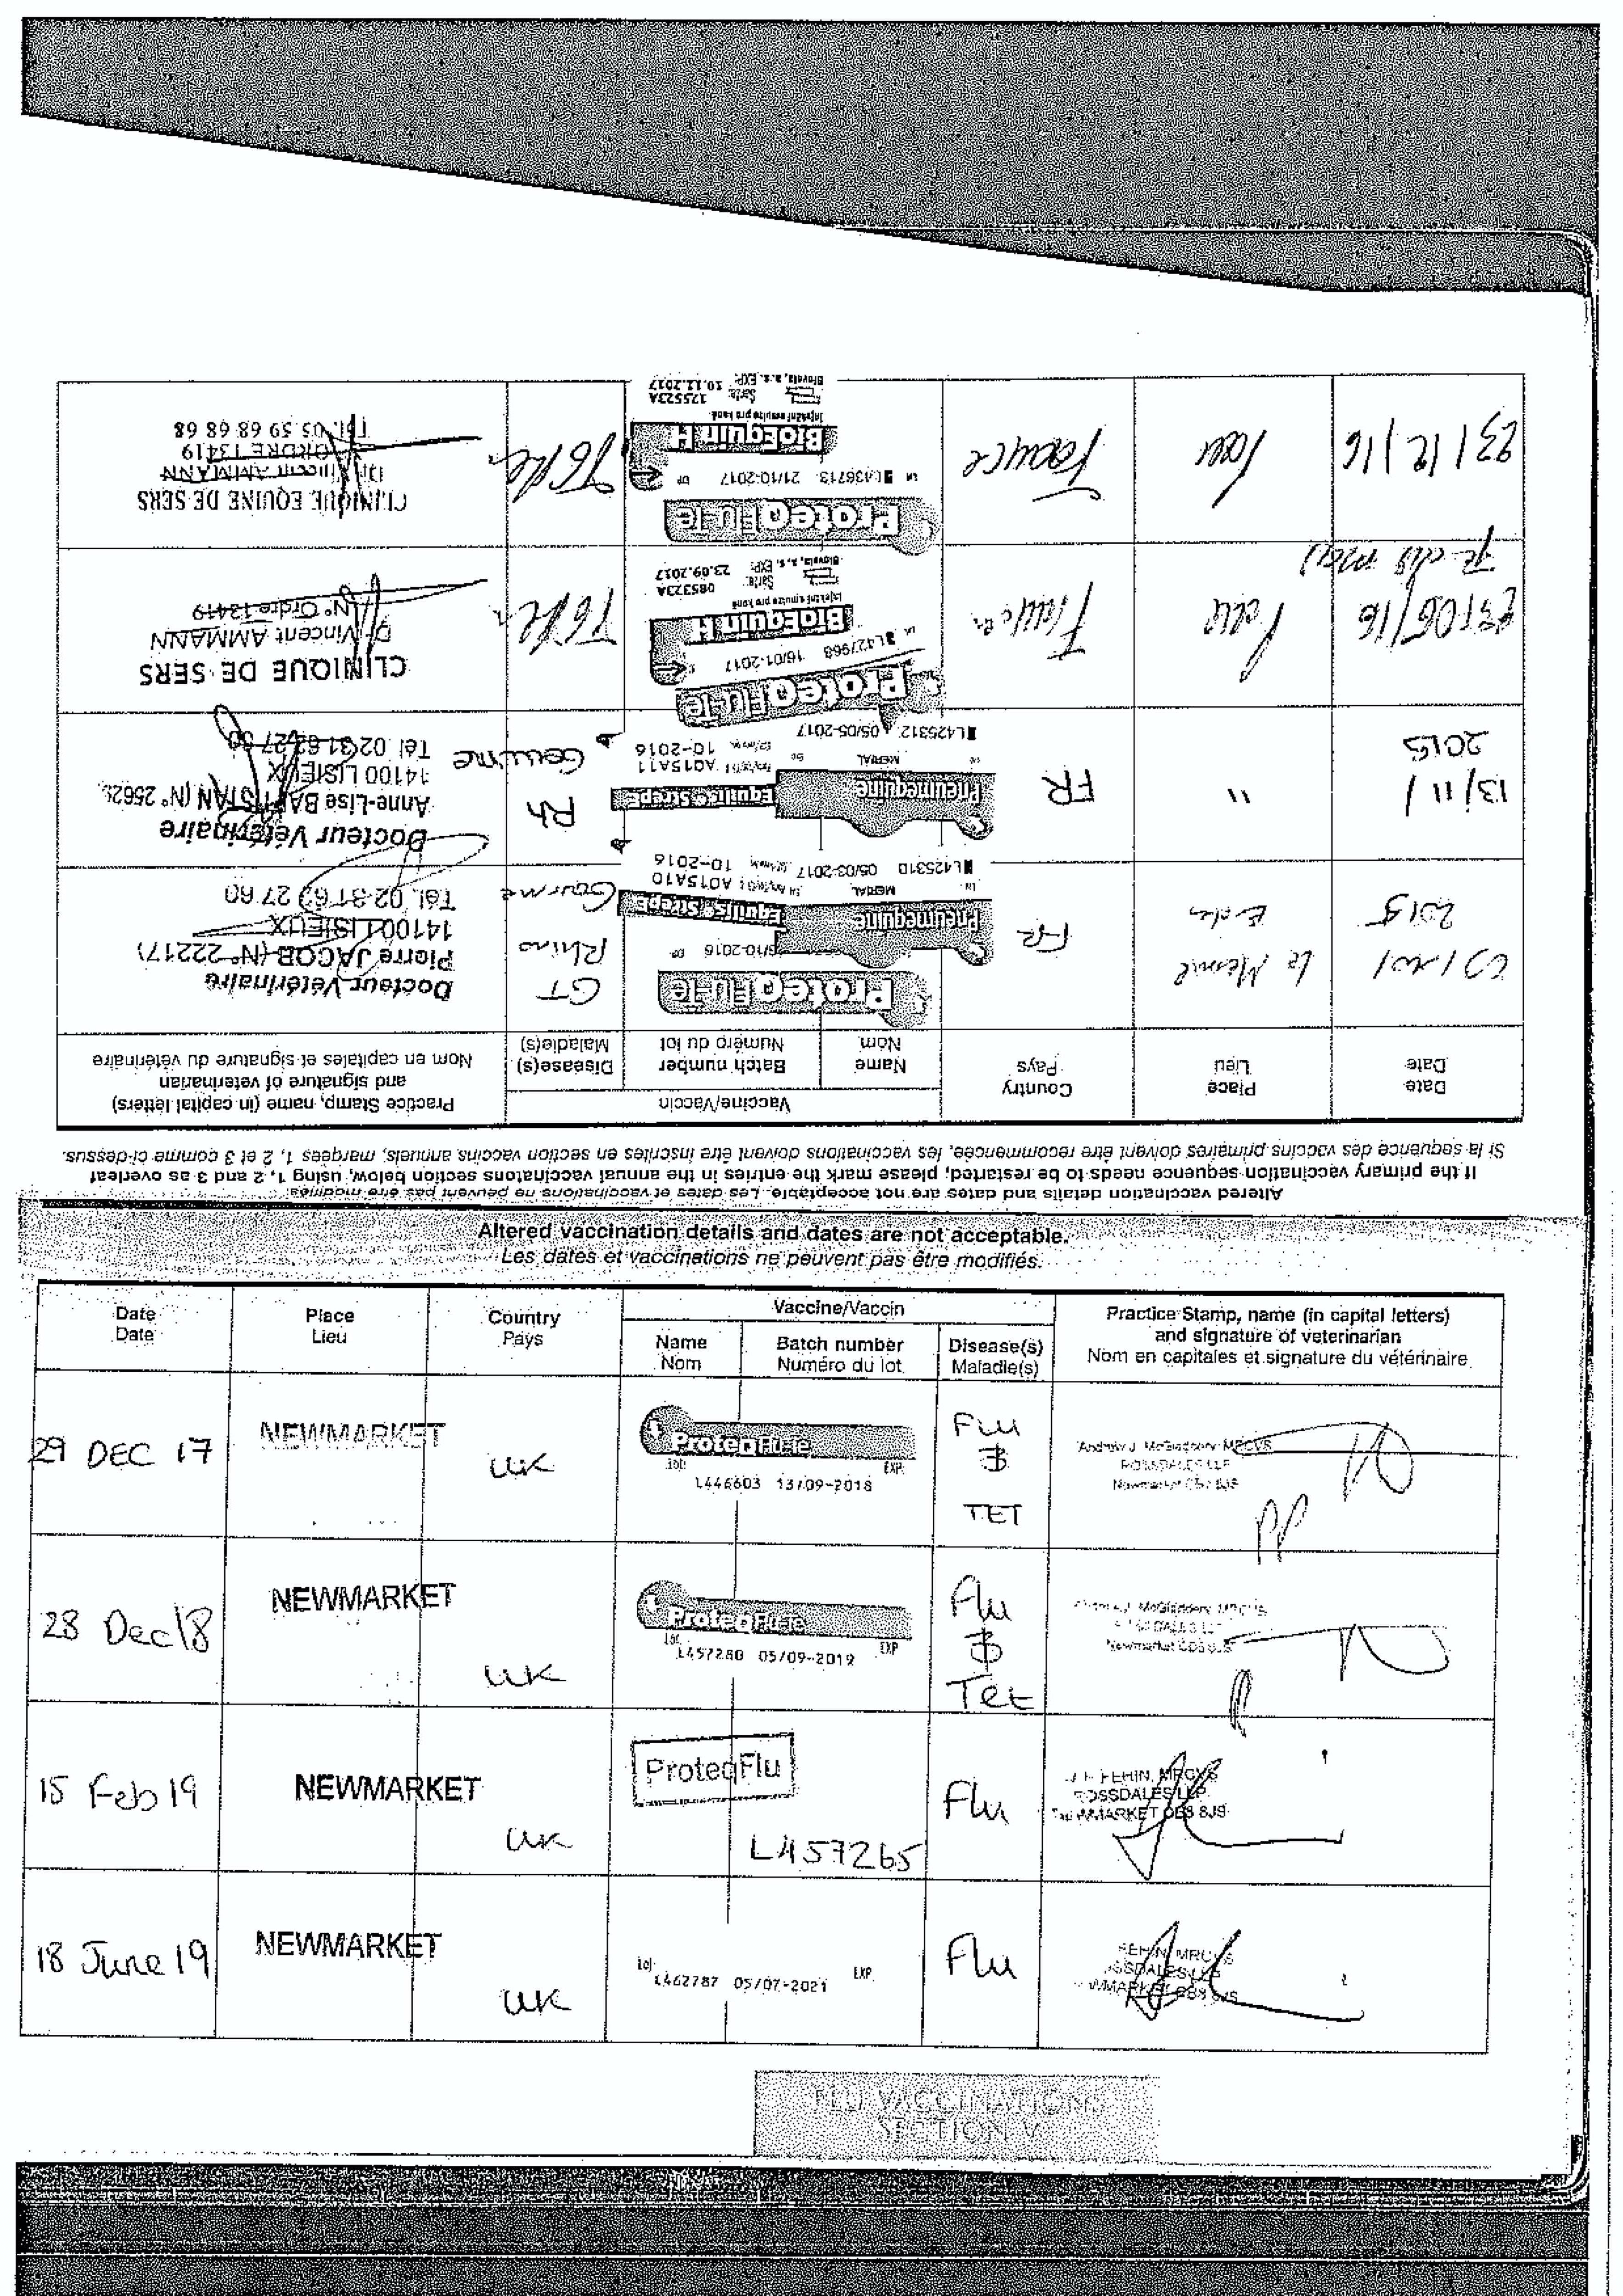 Altered vaccination details and dates are not acceptable. Les dates et vaccinations ne peuvent pas être modifiés.
If the primary vaccination sequence needs to be restarted; please mark the entries in the annual vaccinatons section below, using 1, 2 and 3 as overleaf
Si la séquence des vaccins primaires doivent être recommencée, les vaccinations doivent être inscrites en section vaccins annuels, marqées 1, 2 et 3 comme ci-dessus.
Date
Date
Place
Lieu
Country
Pays
Vaccine/Vaccin
Name
Nom
Batch number
Numéro du lot
Disease(s)
Maladie(s)
Practice Stamp, name (in capital letters)
and signature of veterinarian
Nom en capitales et signature du vétérinaire
2015
Le Mesnil
FR
ProteqFlu-Te
10-2016
Pneumequine
MERIAL
L425310 05/03-2017
Equilis StrepE
A015A10
10-2016
GT
Rhino
Gourme
Docteur Vétérinaire
Pierre JACOB (N° 22217)
14100 LISIEUX
Tél. 02 31 62 27 60
13/11/
2015
"
FR
Pneumequine
MERIAL
L425312 05/05-2017
Equilis StrepE
A015A11
10-2016
Rh
Gourme
Docteur Vétérinaire
Anne-Lise BAPTISTAN (N° 25625)
14100 LISIEUX
Tél. 02 31 62 27 60
23/05/16
Pau
France
ProteqFlu-Te
L427968 16/01-2017
BioEquin H
Injekční emulze pro koně
085323A
Šarže:
Bioveta, a.s. EXP: 23.09.2017
CLINIQUE DE SERS
Dr Vincent AMMANN
N° Ordre 13419
23/12/16
Pau
France
ProteqFlu-Te
L436713 21/10-2017
BioEquin H
Injekční emulze pro koně
Šarže: 175523A
Bioveta, a.s. EXP: 10.11.2017
CLINIQUE EQUINE DE SERS
Dr Vincent AMMANN
ORDRE 13419
Tél. 05 59 68 68 68
Altered vaccination details and dates are not acceptable.
Les dates et vaccinations ne peuvent pas être modifiés.
Date
Date
Place
Lieu
Country
Pays
Vaccine/Vaccin
Name
Nom
Batch number
Numéro du lot
Disease(s)
Maladie(s)
Practice Stamp, name (in capital letters)
and signature of veterinarian
Nom en capitales et signature du vétérinaire
29 DEC 17
NEWMARKET
UK
ProteqFlu-Te
Lot
EXP.
L446603 13/09-2018
Flu
&
TET
Andrew J. McGladdery MRCVS
ROSSDALES LLP
Newmarket CB8 8JS
PP
28 Dec 18
NEWMARKET
UK
ProteqFlu-Te
Lot
EXP
L457280 05/09-2019
Flu
&
Tet
McGladdery MRCVS
Newmarket CB8 8JS
15 Feb 19
NEWMARKET
UK
ProteqFlu
L457265
Flu
FEHIN, MRCVS
ROSSDALES LLP
NEWMARKET CB8 8JS
18 June 19
NEWMARKET
UK
Lot
L462787 05/07-2021
EXP.
Flu
FEHIN, MRCVS
ROSSDALES LLP
NEWMARKET CB8 8JS
FLU VACCINATIONS
SECTION V